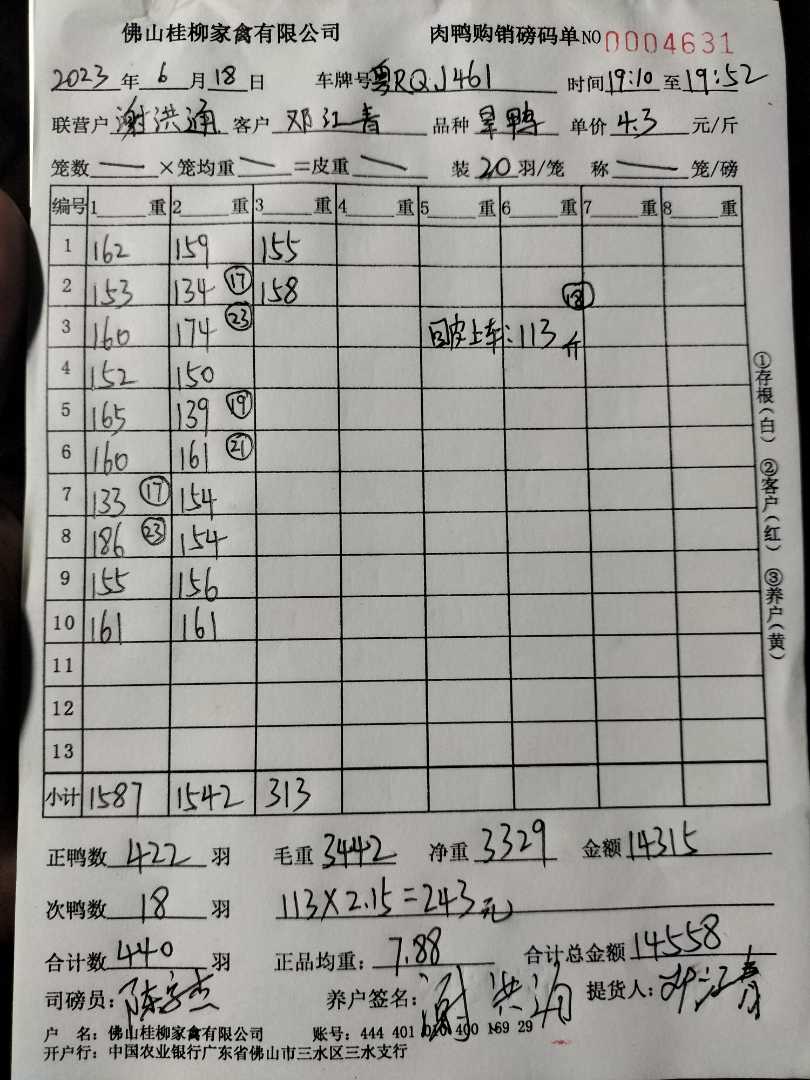 佛山桂柳家禽有限公司 肉鸭购销磅码单NO 0004631
2023年6月18日 车牌号粤RQJ461 时间19:10至19:52
联营户谢洪通 客户邓江青 品种旱鸭 单价4.3元/斤
笼数一×笼均重一=皮重一 装20羽/笼 称一笼/磅
编号 1重 2重 3重 4重 5重 6重 7重 8重
1 162 159 155
2 153 134 ⑰ 158 ⑱
3 160 174 ㉓ 回皮上车:113斤
4 152 150
5 165 139 ⑲
6 160 161 ㉑
7 133 ⑰ 154
8 186 ㉓ 154
9 155 156
10 161 161
11
12
13
小计 1587 1542 313
正鸭数422羽 毛重3442 净重3329 金额14315
次鸭数18羽 113×2.15=243元
合计数440羽 正品均重:7.88 合计总金额14558
司磅员: 养户签名:谢洪通 提货人:邓江青
户 名:佛山桂柳家禽有限公司 账号:444 401 010 400 169 29
开户行:中国农业银行广东省佛山市三水区三水支行
①存根(白) ②客户(红) ③养户(黄)